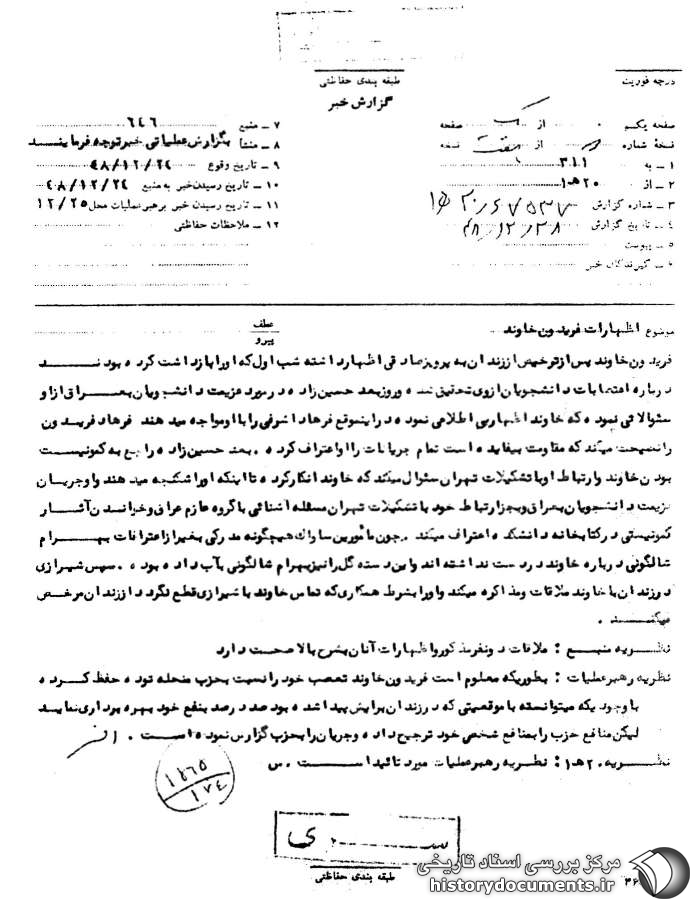 درجه فوریت
طبقه بندی حفاظتی
گزارش خبر
صفحه یکم از یک صفحه
نسخهٔ شماره از هفت نسخه
۱ ــ به ۳۱۱
۲ ــ از ۲۰ هـ ۱
۳ ــ شماره گزارش
۴ ــ تاریخ گزارش ۴۸/۱۲/۲۸
۵ ــ پیوست
۶ ــ گیرندگان خبر
۷ ــ منبع ۶۴۶
۸ ــ منشأ بگزارش عملیاتی خبر توجه فرمایند
۹ ــ تاریخ وقوع ۴۸/۱۲/۲۴
۱۰ ــ تاریخ رسیدن خبر به منبع ۴۸/۱۲/۲۴
۱۱ ــ تاریخ رسیدن خبر برهبر عملیات محل ۱۲/۲۵
۱۲ ــ ملاحظات حفاظتی
موضوع اظهارات فریدون خاوند
عطف
پیرو
فریدون خاوند پس از ترخیص از زندان به پرویز صادقی اظهار داشته شب اول که او را بازداشت کرده بودند
درباره اعتصابات دانشجویان از وی تحقیق شده و روز بعد حسین زاده در مورد عزیمت دانشجویان بعراق از او
سئوالاتی نموده که خاوند اظهار بی اطلاعی نموده در اینموقع فرهاد اشرفی را با او مواجه میدهند فرهاد فریدون
را نصیحت میکند که مقاومت بیفایده است تمام جریانات را او اعتراف کرده . بعد حسین زاده راجع به کمونیست
بودن خاوند و ارتباط او با تشکیلات تهران سئوال میکند که خاوند انکار کرده تا اینکه او را شکنجه میدهند و جریان
عزیمت دانشجویان بعراق و بجز ارتباط خود با تشکیلات تهران مسئله آشنائی با گروه عازم عراق و خواندن آثار
کمونیستی در کتابخانه دانشکده اعتراف میکند . چون مأمورین ساواک هیچگونه مدرکی بغیر از اعترافات بهرام
شالگونی درباره خاوند در دست نداشته اند و این دسته گل را نیز بهرام شالگونی بآب داده بود . سپس شیرازی
در زندان با خاوند ملاقات و مذاکره میکند و او را بشرط همکاری که تماس خاوند با شیرازی قطع نگردد از زندان مرخص
میکنند .
نظریه منبع : ملاقات دو نفر مذکور و اظهارات آنان بشرح بالا صحت دارد
نظریه رهبر عملیات : بطوریکه معلوم است فریدون خاوند تعصب خود را نسبت بحزب منحله توده حفظ کرده
با وجودیکه میتوانسته با موقعیتی که در زندان برایش پیدا شده بود صد در صد بنفع خود بهره برداری نماید
لیکن منافع حزب را بمنافع شخصی خود ترجیح داده و جریان را بحزب گزارش نموده است .
نظریه ۲۰ هـ ۱ : نظریه رهبر عملیات مورد تائید است . س
۱۸۶۵
۱۷۴
سری
طبقه بندی حفاظتی
۳۶
مرکز بررسی اسناد تاریخی
historydocuments.ir